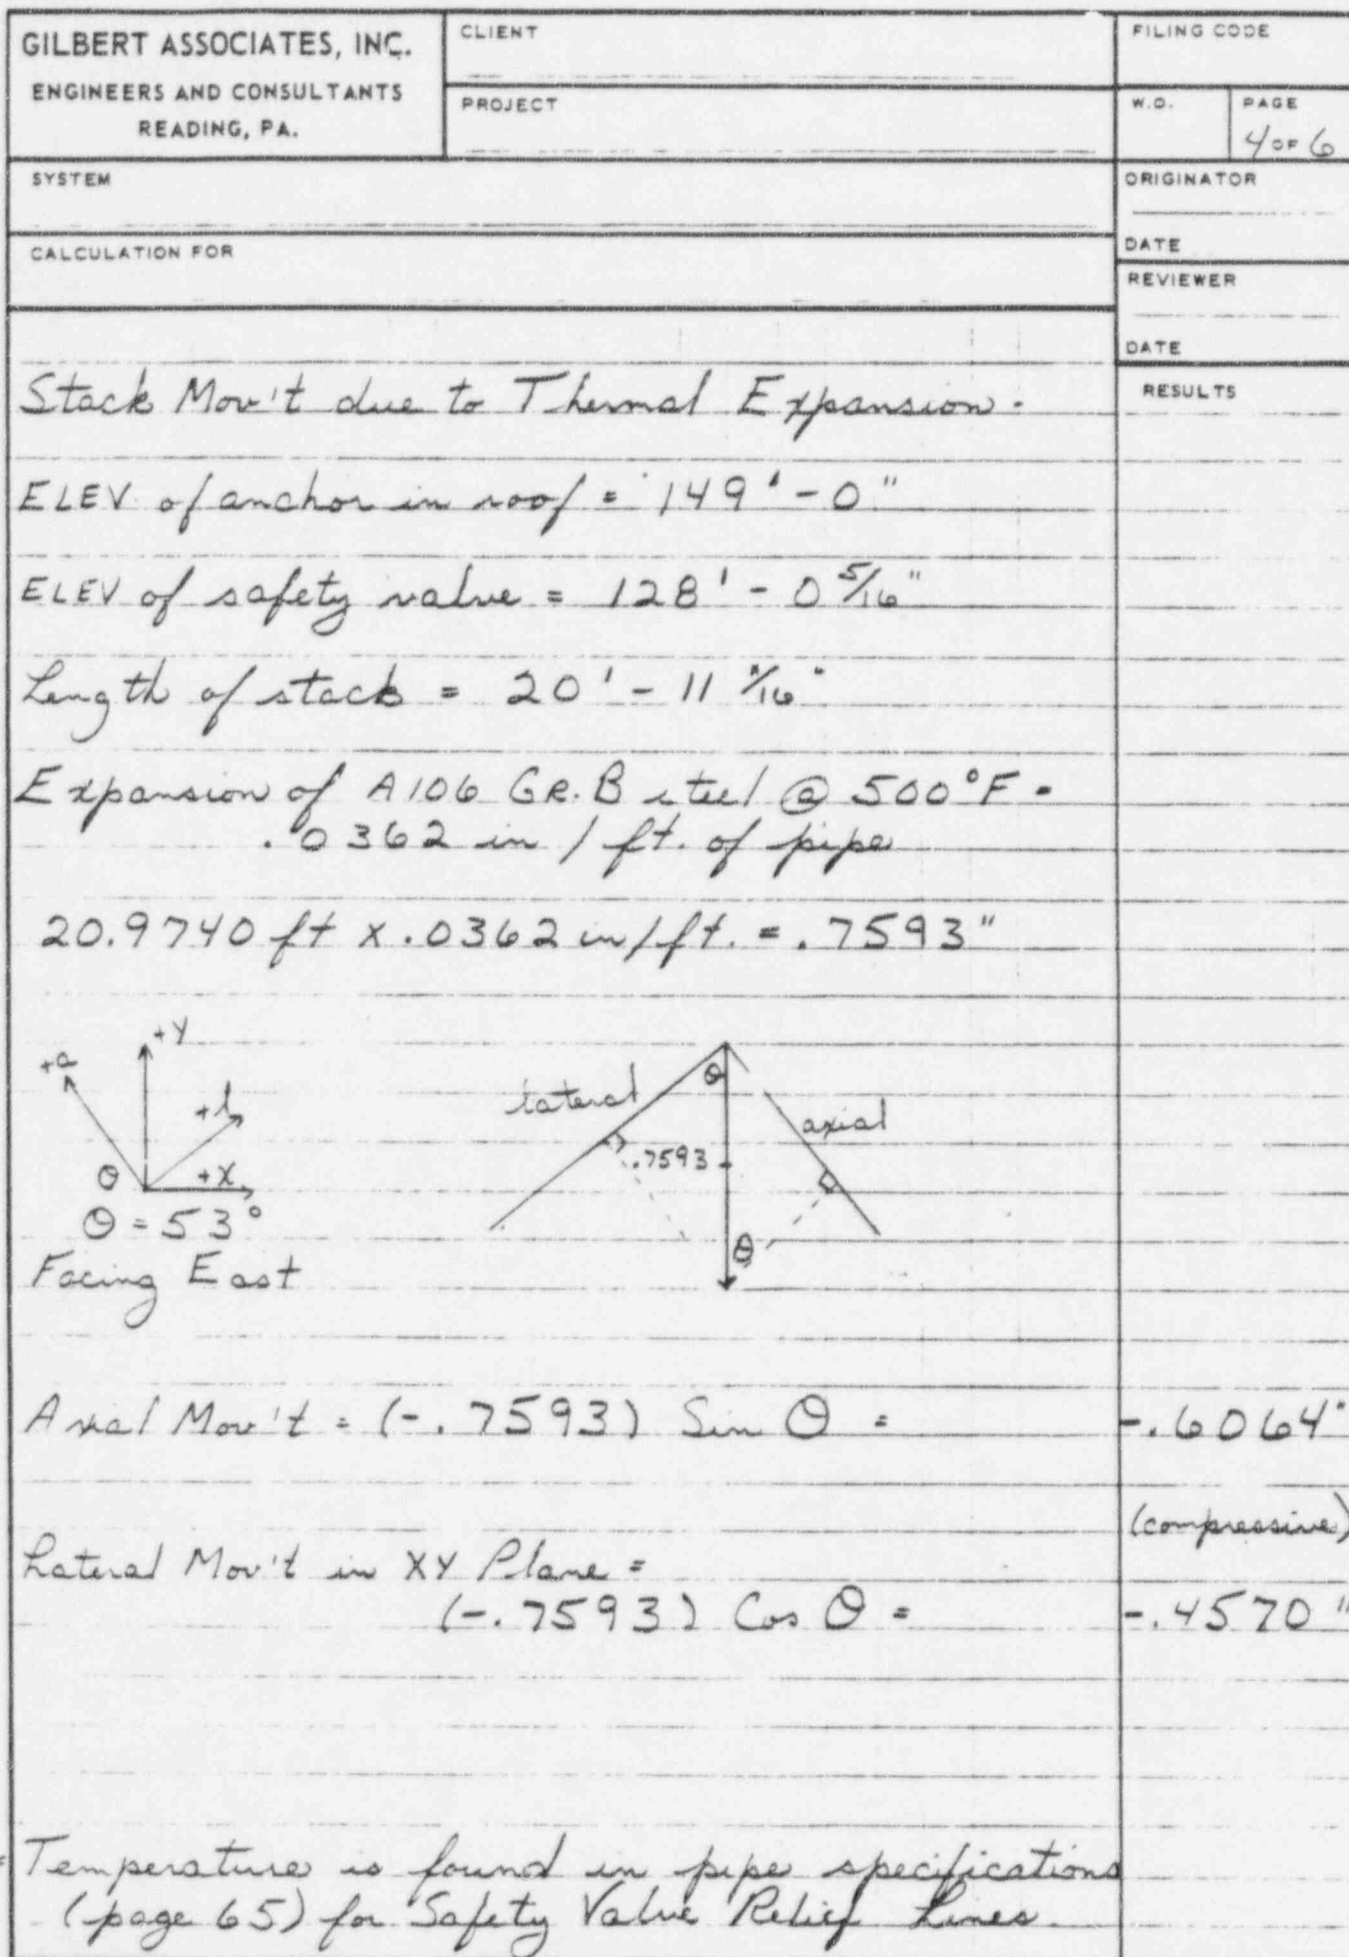 GILBERT ASSOCIATES, INC.
ENGINEERS AND CONSULTANTS
READING, PA.
CLIENT
PROJECT
FILING CODE
W.O.
PAGE
4 OF 6
SYSTEM
CALCULATION FOR
ORIGINATOR
DATE
REVIEWER
DATE
RESULTS
Stack Mov't due to Thermal Expansion -
ELEV. of anchor in roof = 149' - 0"
ELEV of safety valve = 128' - 0 5/16"
Length of stack = 20' - 11
Expansion of A106 GR. B steel @ 500°F -
.0362 in / ft. of pipe
20.9740 ft x .0362 in/ft. = .7593"
+a
+Y
+l
θ
+X
θ = 53°
Facing East
lateral
θ
axial
.7593
θ
Axial Mov't = (-.7593) Sin θ = -.6064"
(compressive)
Lateral Mov't in XY Plane =
(-.7593) Cos θ = -.4570"
Temperature is found in pipe specifications
(page 65) for Safety Valve Relief Lines.